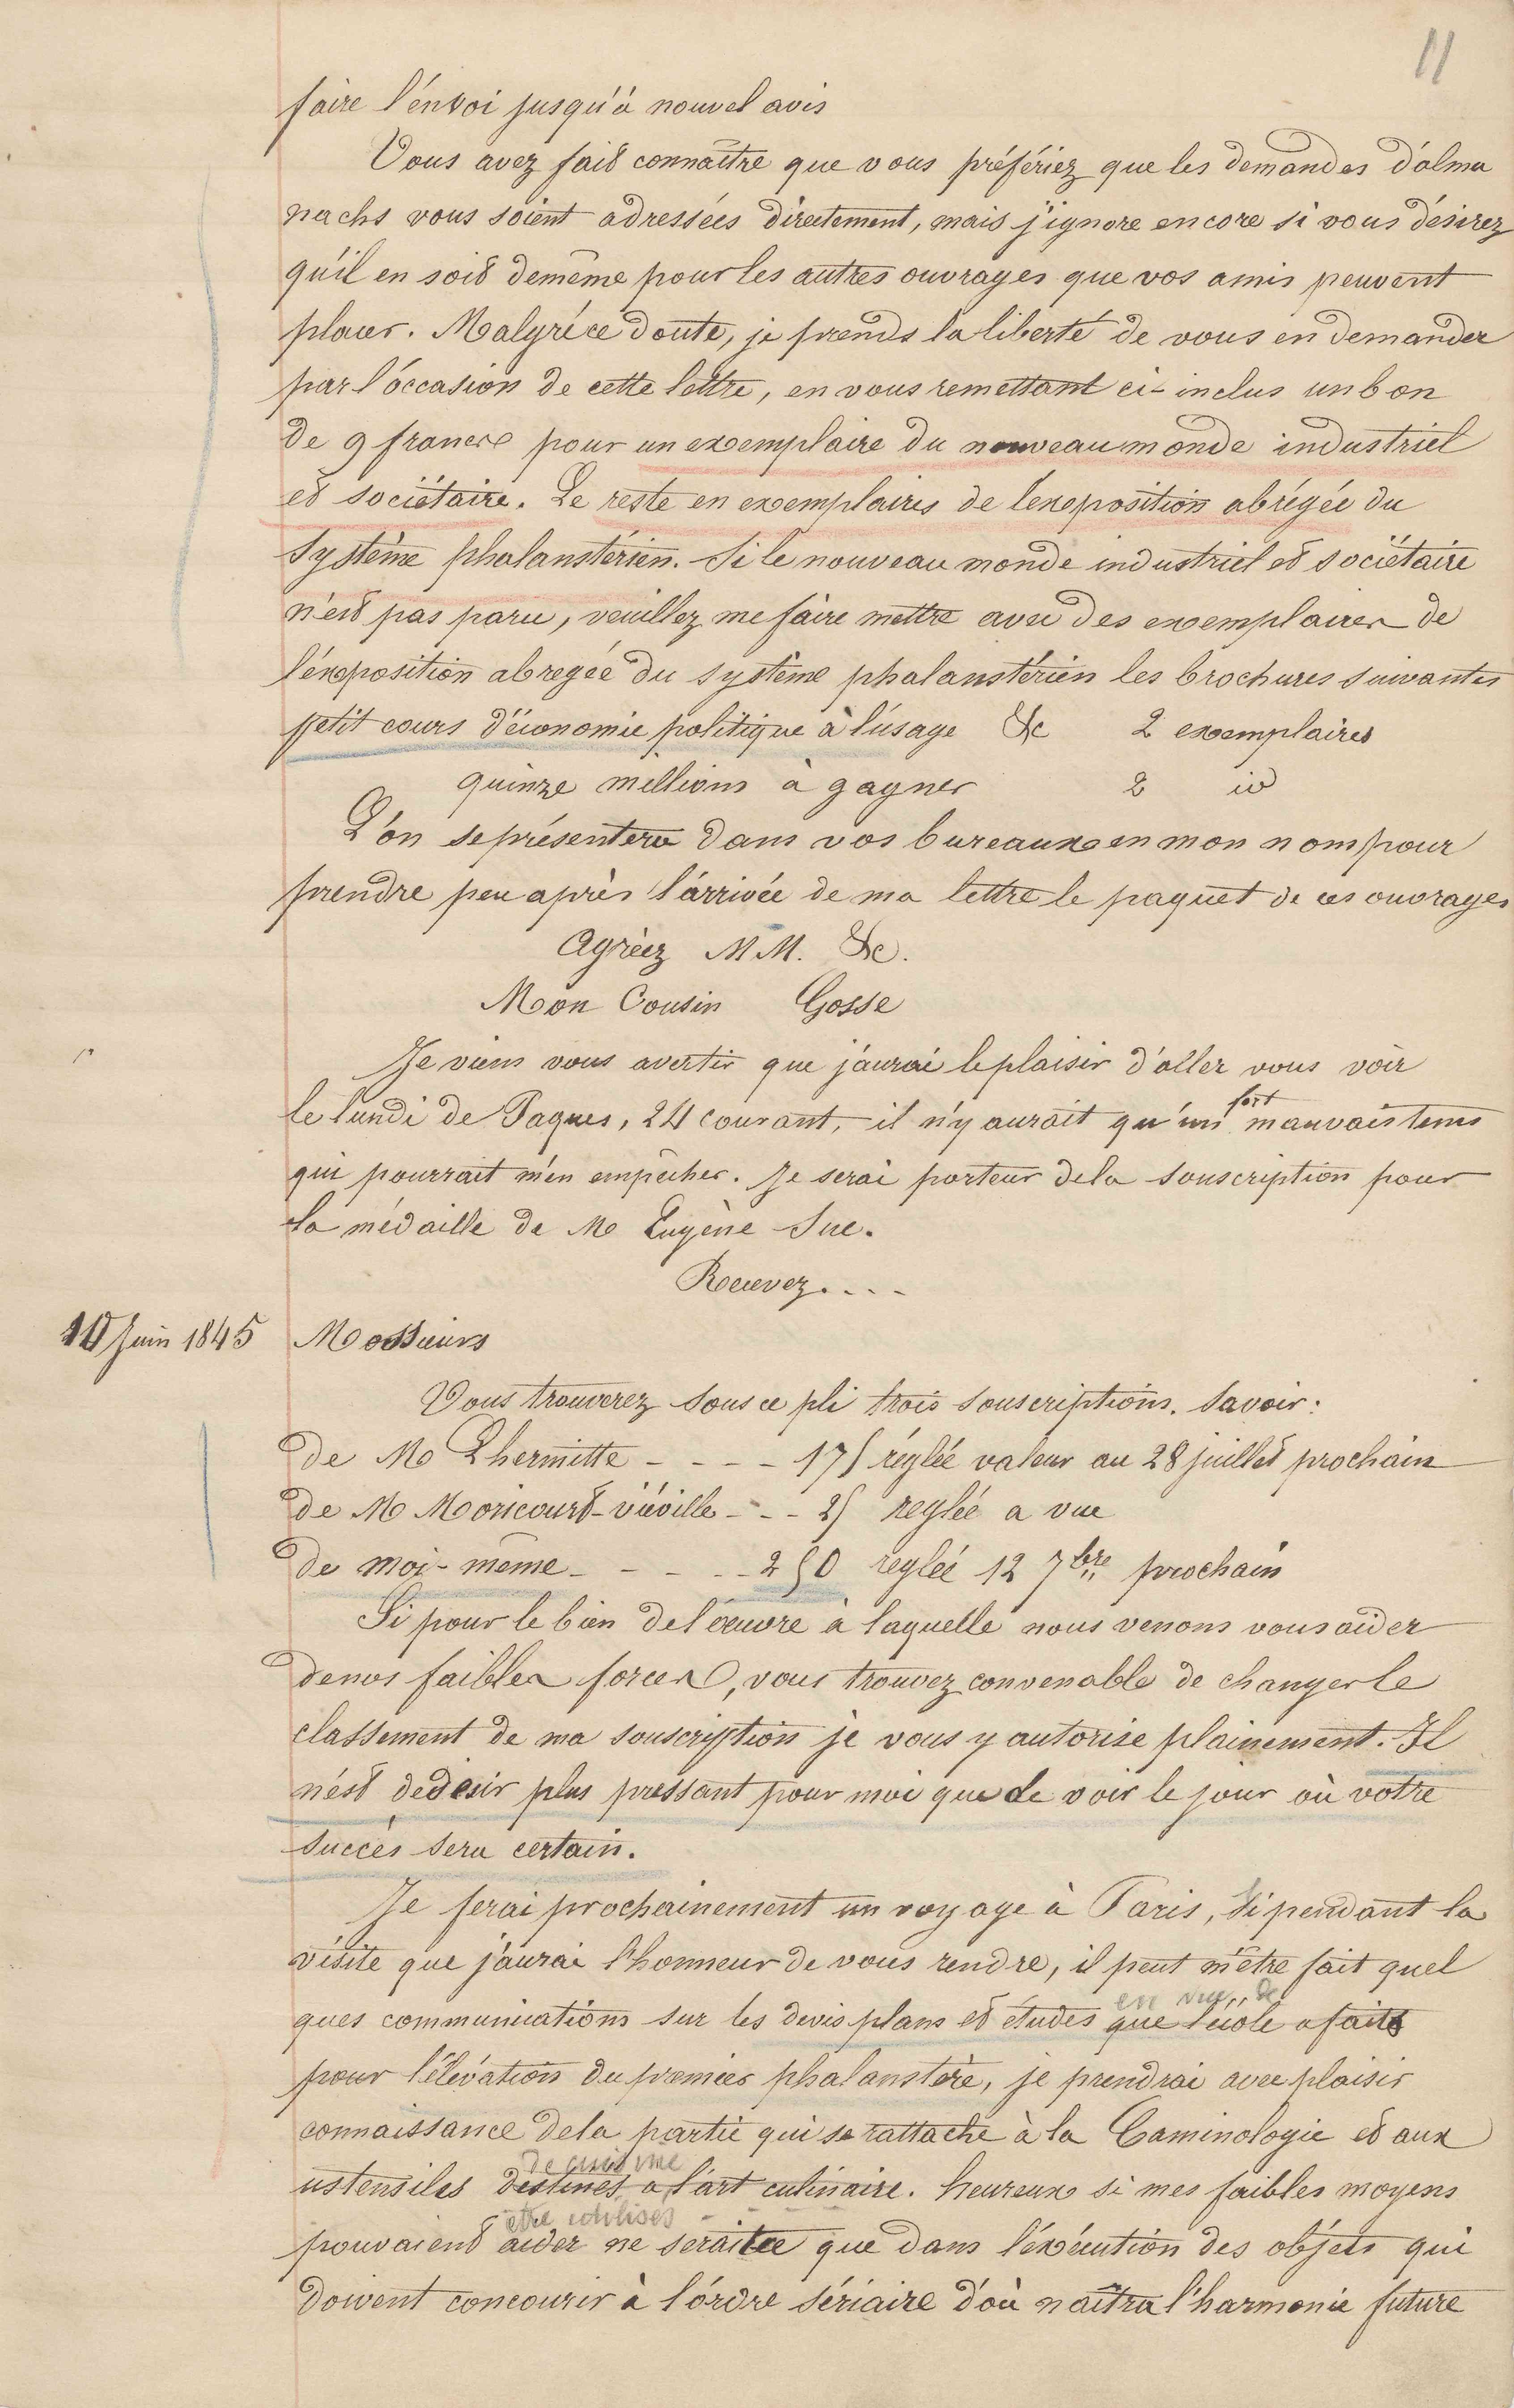 11
faire l'envoi jusqu'à nouvel avis
Vous avez fait connaître que vous préfériez que les demandes d'alma
nachs vous soient adressées directement, mais j'ignore encore si vous désirez
qu'il en soit demême pour les autres ouvrages que vos amis peuvent
placer. Malgré ce doute, je prends la liberté de vous en demander
par l'occasion de cette lettre, en vous remettant ci-inclus un bon
de 9 francs pour un exemplaire du nouveau monde industriel
et sociétaire. Le reste en exemplaires de l'exposition abrégée du
système phalanstérien. Si le nouveau monde industriel et sociétaire
n'est pas paru, veuillez me faire mettre avec des exemplaires de
l'éxposition abregée du système phalanstérien les brochures suivantes
petit cours d'économie politique à l'usage &c 2 exemplaires
quinze millions à gagner 2 id
L'on se présentera dans vos bureaux en mon nom pour
prendre peu après l'arrivée de ma lettre le paquet de ces ouvrages
Agréez MM. &c.
Mon Cousin Gosse
Je viens vous avertir que j'aurai le plaisir d'aller vous voir
le lundi de Paques, 24 courant, il n'y aurait qu'un fort mauvais tems
qui pourrait m'en empêcher. Je serai porteur de la souscription pour
la médaille de M Eugène Sue.
Recevez....
10 Juin 1845 Messieurs
Vous trouverez sous ce pli trois souscriptions. Savoir:
de M Lhermitte - - - - 17f réglée valeur au 28 juillet prochain
de M Moricourt-viéville - - - 2f reglée a vue
de moi-même - - - - - 250 reglée 12 7bre prochain
Si pour le bien de l'œuvre à laquelle nous venons vous aider
de nos faibles forces, vous trouvez convenable de changer le
classement de ma souscription je vous y autorise plainement. Il
n'est de desir plus pressant pour moi que de voir le jour où votre
succès sera certain.
Je ferai prochainement un voyage à Paris, si pendant la
visite que j'aurai l'honneur de vous rendre, il peut m'être fait quel
ques communications sur les devis plans et études que l'école a faits
en vue de
pour l'élévation du premier phalanstère, je prendrai avec plaisir
connaissance de la partie qui se rattache à la Caminologie et aux
ustensiles destinés a l'art culinaire. heureux si mes faibles moyens
de cuisine
pouvaient aider ne serait ce que dans l'éxécution des objets qui
être utilisés
doivent concourir à l'ordre sériaire d'où naîtra l'harmonie future